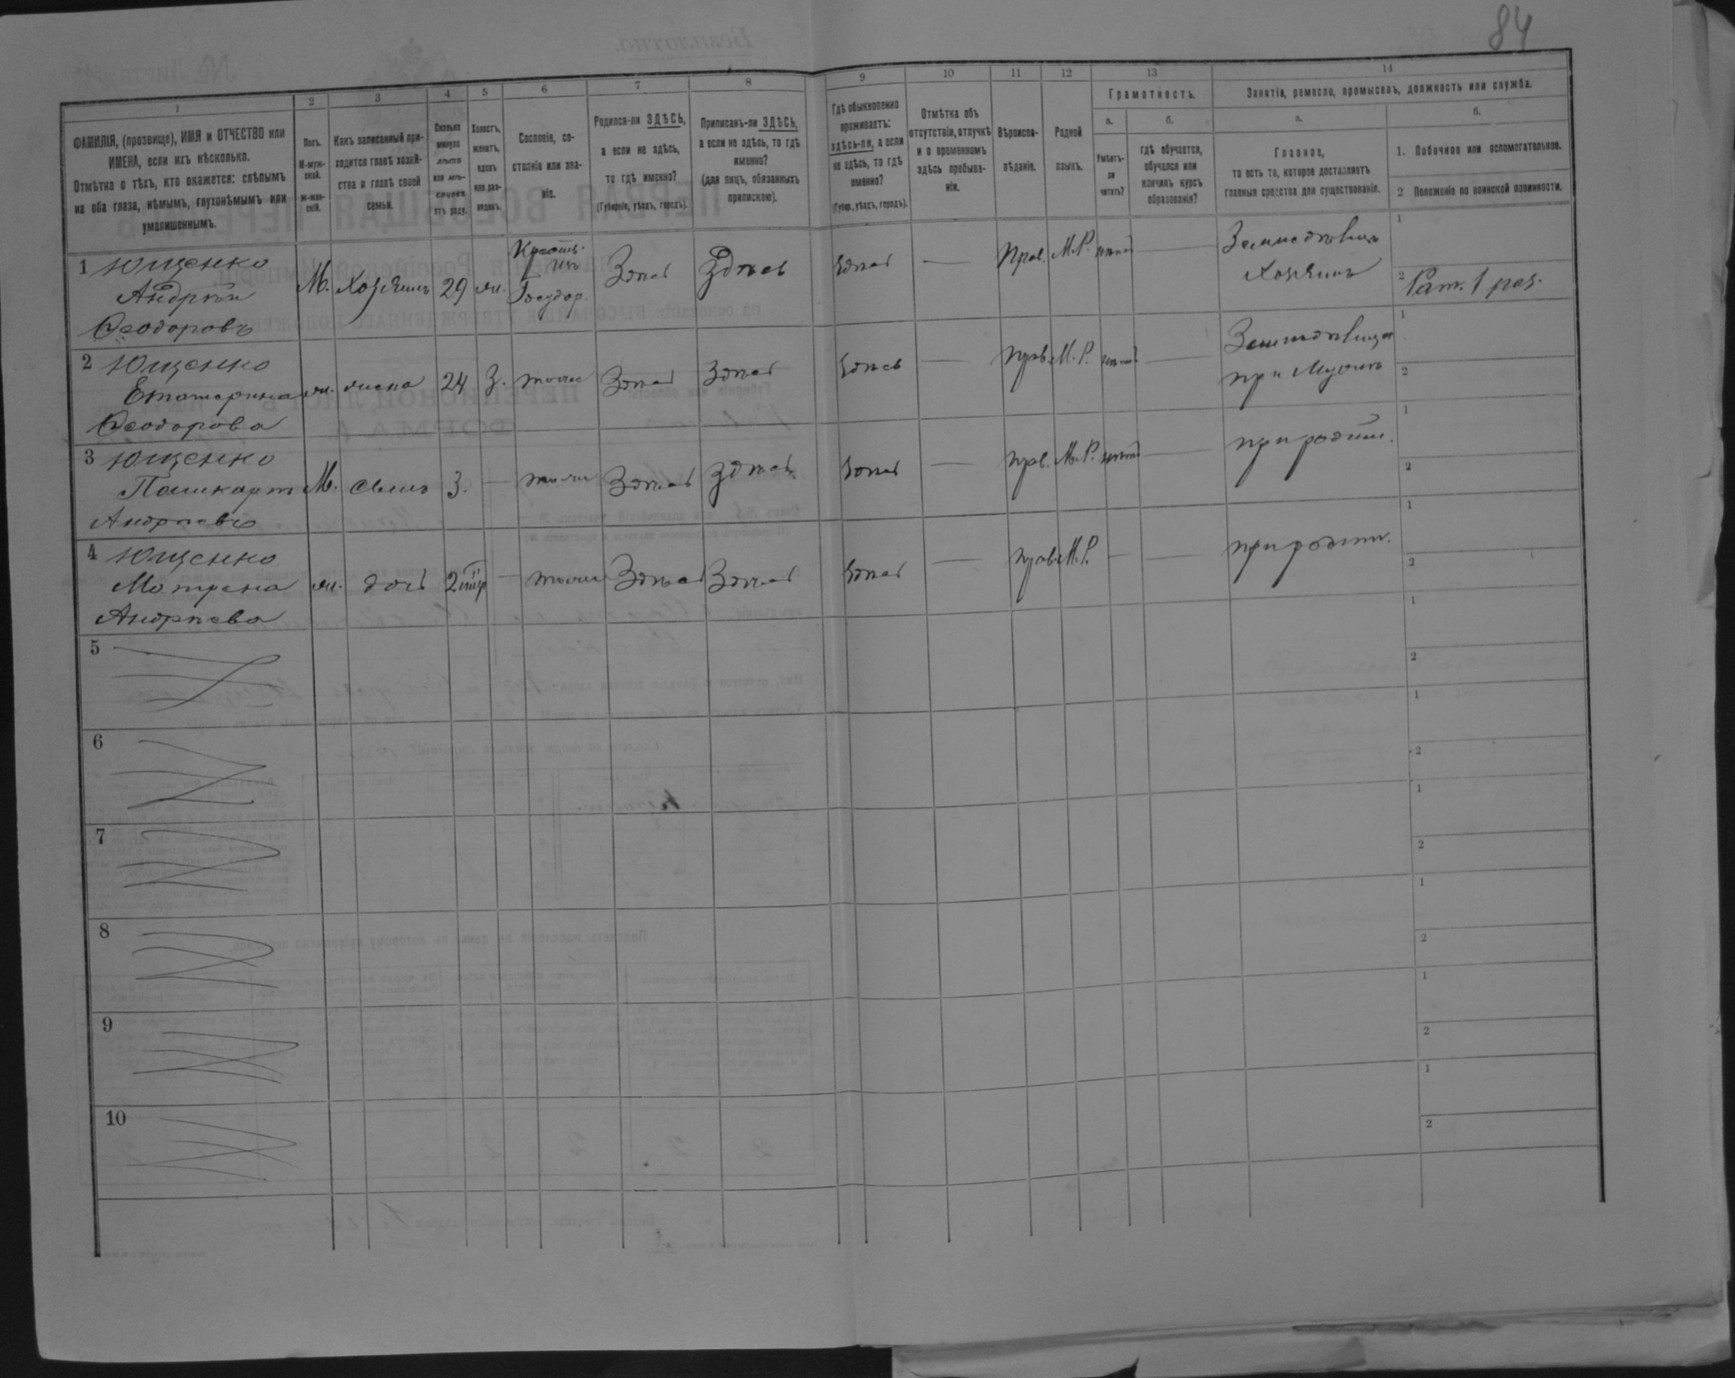 84
1
2
3
4
5
6
7
8
9
10
11
12
13
14
ФАМИЛІЯ, (прозвище), ИМЯ и ОТЧЕСТВО или
ИМЕНА, если ихъ нѣсколько.
Отмѣтка о тѣхъ, кто окажется: слѣпымъ
на оба глаза, нѣмымъ, глухонѣмымъ или
умалишеннымъ.
Полъ.
М-муж-
ской.
Ж-жен-
скій.
Какъ записанный при-
ходится главѣ хозяй-
ства и главѣ своей
семьи.
Сколько
минуло
лѣтъ
или мѣ-
сяцевъ
отъ роду.
Холостъ,
женатъ,
вдовъ
или раз-
веденъ.
Сословіе, со-
стояніе или зва-
ніе.
Родился-ли ЗДѢСЬ,
а если не здѣсь,
то гдѣ именно?
(Губернія, уѣздъ, городъ).
Приписанъ-ли ЗДѢСЬ,
а если не здѣсь, то гдѣ
именно?
(для лицъ, обязанныхъ
припискою).
Гдѣ обыкновенно
проживаетъ:
здѣсь-ли, а если
не здѣсь, то гдѣ
именно?
(Губер., уѣздъ, городъ).
Отмѣтка объ
отсутствіи, отлучкѣ
и о временномъ
здѣсь пребыва-
ніи.
Вѣроиспо-
вѣданіе.
Родной
языкъ.
Грамотность.
а.
б.
Умѣетъ-
ли
читать?
гдѣ обучается,
обучался или
кончилъ курсъ
образованія?
Занятія, ремесло, промыселъ, должность или служба.
а.
б.
Главное,
то есть то, которое доставляетъ
главныя средства для существованія.
1. Побочное или вспомогательное.
2 Положеніе по воинской повинности.
1 Ющенко
Андрѣй
Ѳеодоровъ
М. Хозяинъ 29 жн. Крестьянъ Государ. Здѣсь Здѣсь Здѣсь — Прав. М.Р. — Земледѣлецъ
Хозяинъ
1
2 Рат. 1 раз.
2 Ющенко
Екатерина
Ѳеодорова
жн. жена 24 З. тоже Здѣсь Здѣсь Здѣсь — прав. М.Р. — Земледѣлица
при Мужѣ
1
2
3 Ющенко
Поликарп
Андреевъ
М. сынъ 3. — тоже Здѣсь Здѣсь Здѣсь — прав. М.Р. — при родит.
1
2
4 Ющенко
Мотрена
Андреева
жн. дочь — тоже Здѣсь Здѣсь Здѣсь — прав. М.Р. — — при родит.
1
2
5
1
2
6
1
2
7
1
2
8
1
2
9
1
2
10
1
2